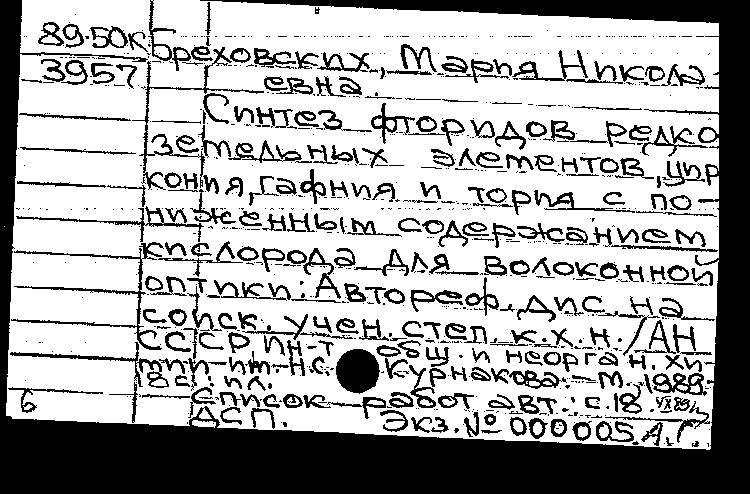 89-50к Бреховских, Мария Никола-
3957 евна.
Синтез фторидов редко
земельных элементов, цир
кония, гафния и тория с по-
ниженным содержанием
кислорода для волоконной
оптики: Автореф. дис. на
соиск. учен. степ. к.х.н. / АН
СССР. Ин-т общ. и неорган. хи-
мии им. Н.С. Курнакова. - М., 1989.-
18 с.: ил.
Список работ авт.: с. 18.
6 ДСП. Экз. № 000005. А.Г.